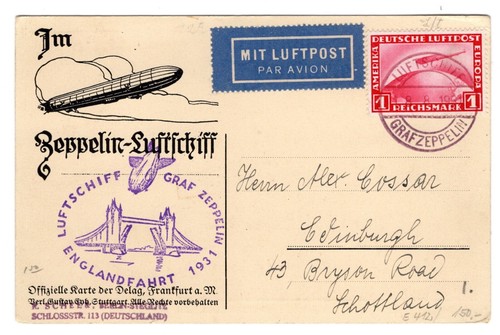 Im
Zeppelin-Luftschiff
MIT LUFTPOST
PAR AVION
DEUTSCHE LUFTPOST
AMERIKA
EUROPA
1 REICHSMARK 1
LUFTSCHIFF
GRAFZEPPELIN
LUFTSCHIFF GRAF ZEPPELIN
ENGLANDFAHRT 1931
Herrn Alex. Cossar
Edinburgh
43, Bryson Road
Schottland
1.
150,-
Offizielle Karte der Delag, Frankfurt a. M.
Verl. Gustav Eyb, Stuttgart. Alle Rechte vorbehalten
BERLIN-STEGLITZ
SCHLOSSTR. 113 (DEUTSCHLAND)